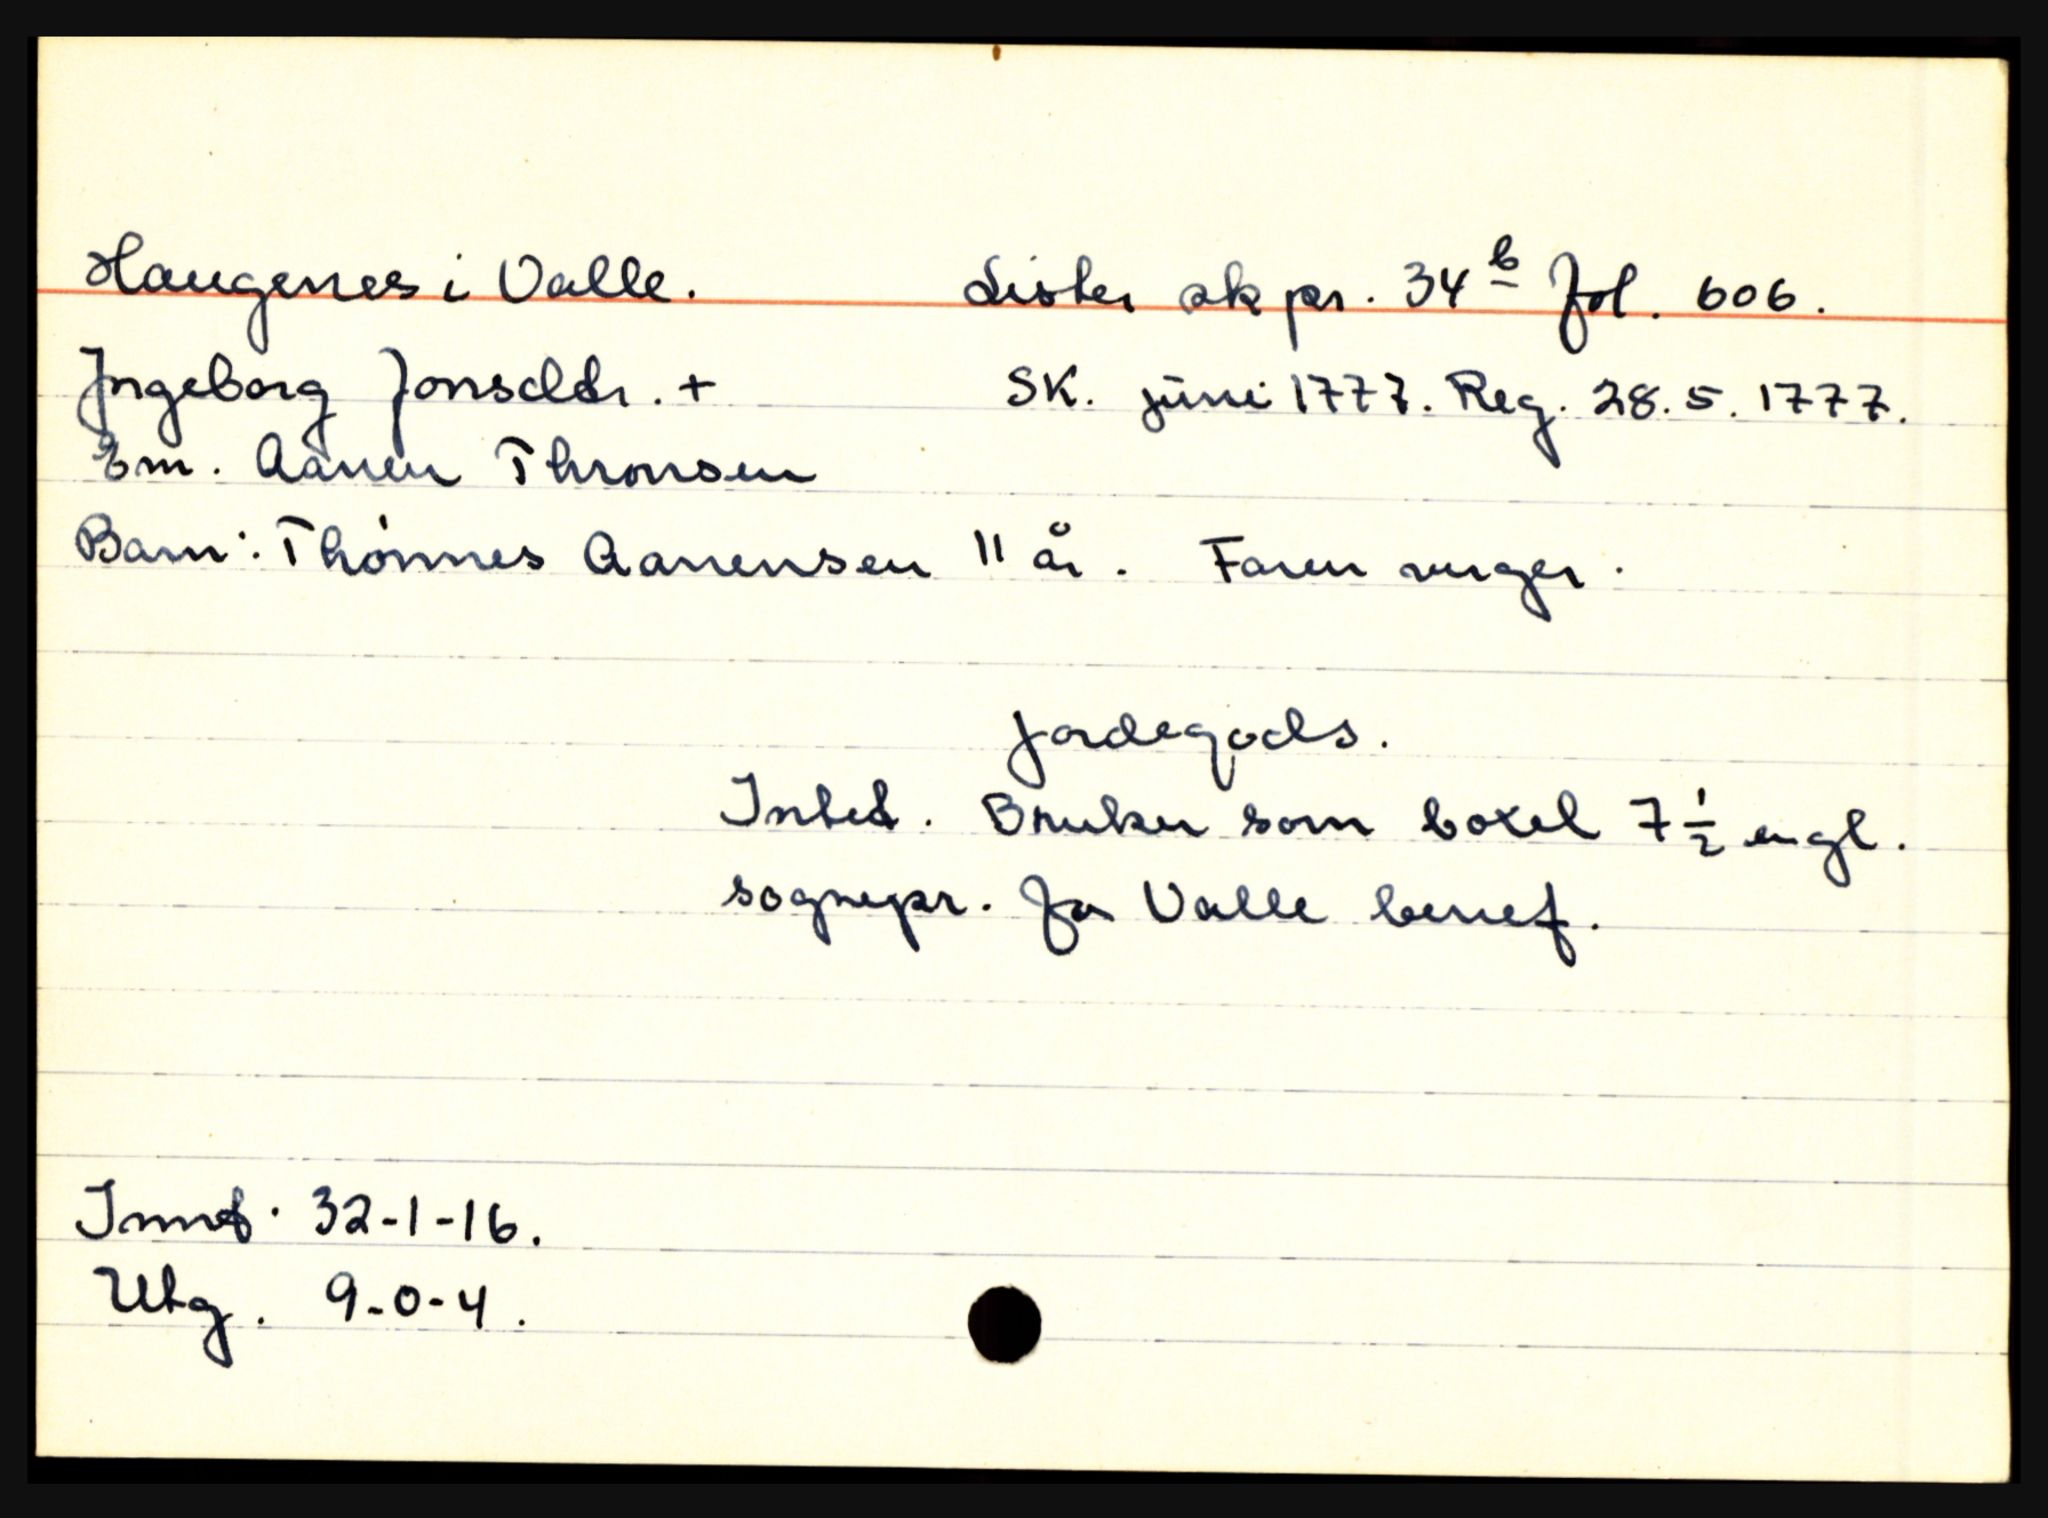 Haugenes i Valle. Lister sk pr. 34 b fol. 606.
Ingeborg Jonsddtr. + SK. juni 1777. Reg. 28.5.1777.
Em. Aanen Thronsen
Barn: Thónnes Aanensen 11 år. Faren verger.
Jordegods.
Intet. Bruker som boxel 7 1/2 engl.
sognepr. fra Valle benef.
Innt. 32-1-16.
Utg. 9-0-4.